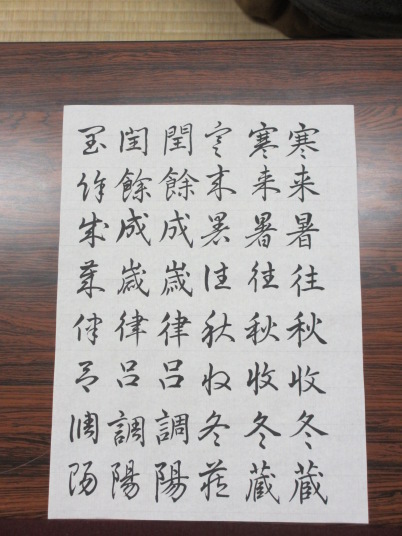 寒来暑往秋收冬蔵
寒来暑往秋收冬蔵
寒来暑往秋收冬蔵
閏餘成歳律呂調陽
閏餘成歳律呂調陽
閏餘成歳律呂調陽